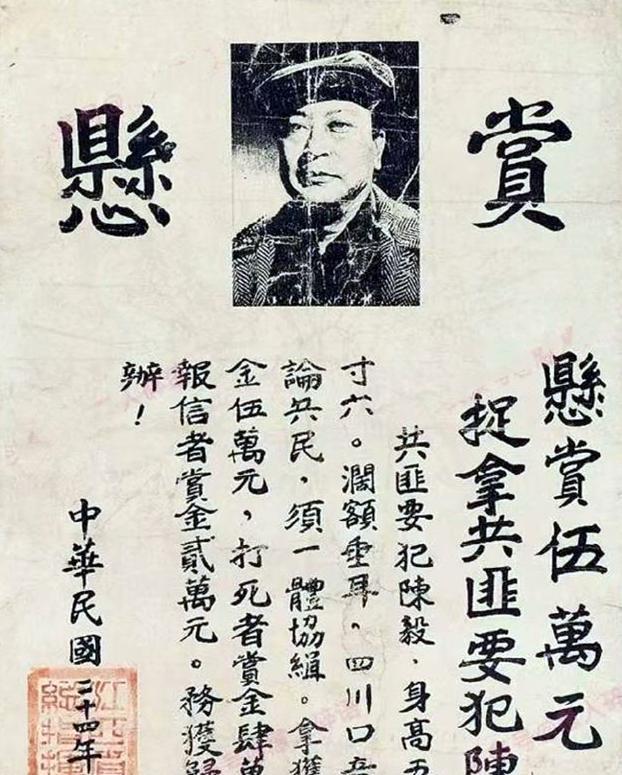 賞懸
懸賞伍萬元
捉拿共匪要犯陳
共匪要犯陳毅，身高五
寸六。濶額垂耳。四川口音
論兵民，須一體協緝。拿獲
金伍萬元，打死者賞金肆萬
報信者賞金貳萬元。務獲歸
辦！
中華民國二十四年